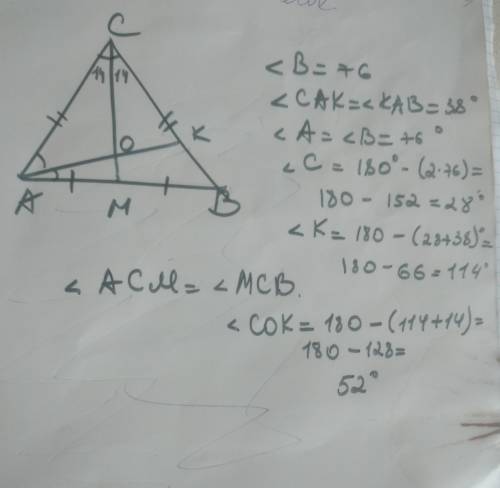 C
14 14
O
K
A
M
B
< B = 76
< CAK = < KAB = 38°
< A = < B = 76°
< C = 180° - (2·76) =
180 - 152 = 28°
< K = 180 - (28+38)° =
180 - 66 = 114°
< ACM = < MCB.
< COK = 180 - (114+14) =
180 - 128 =
52°